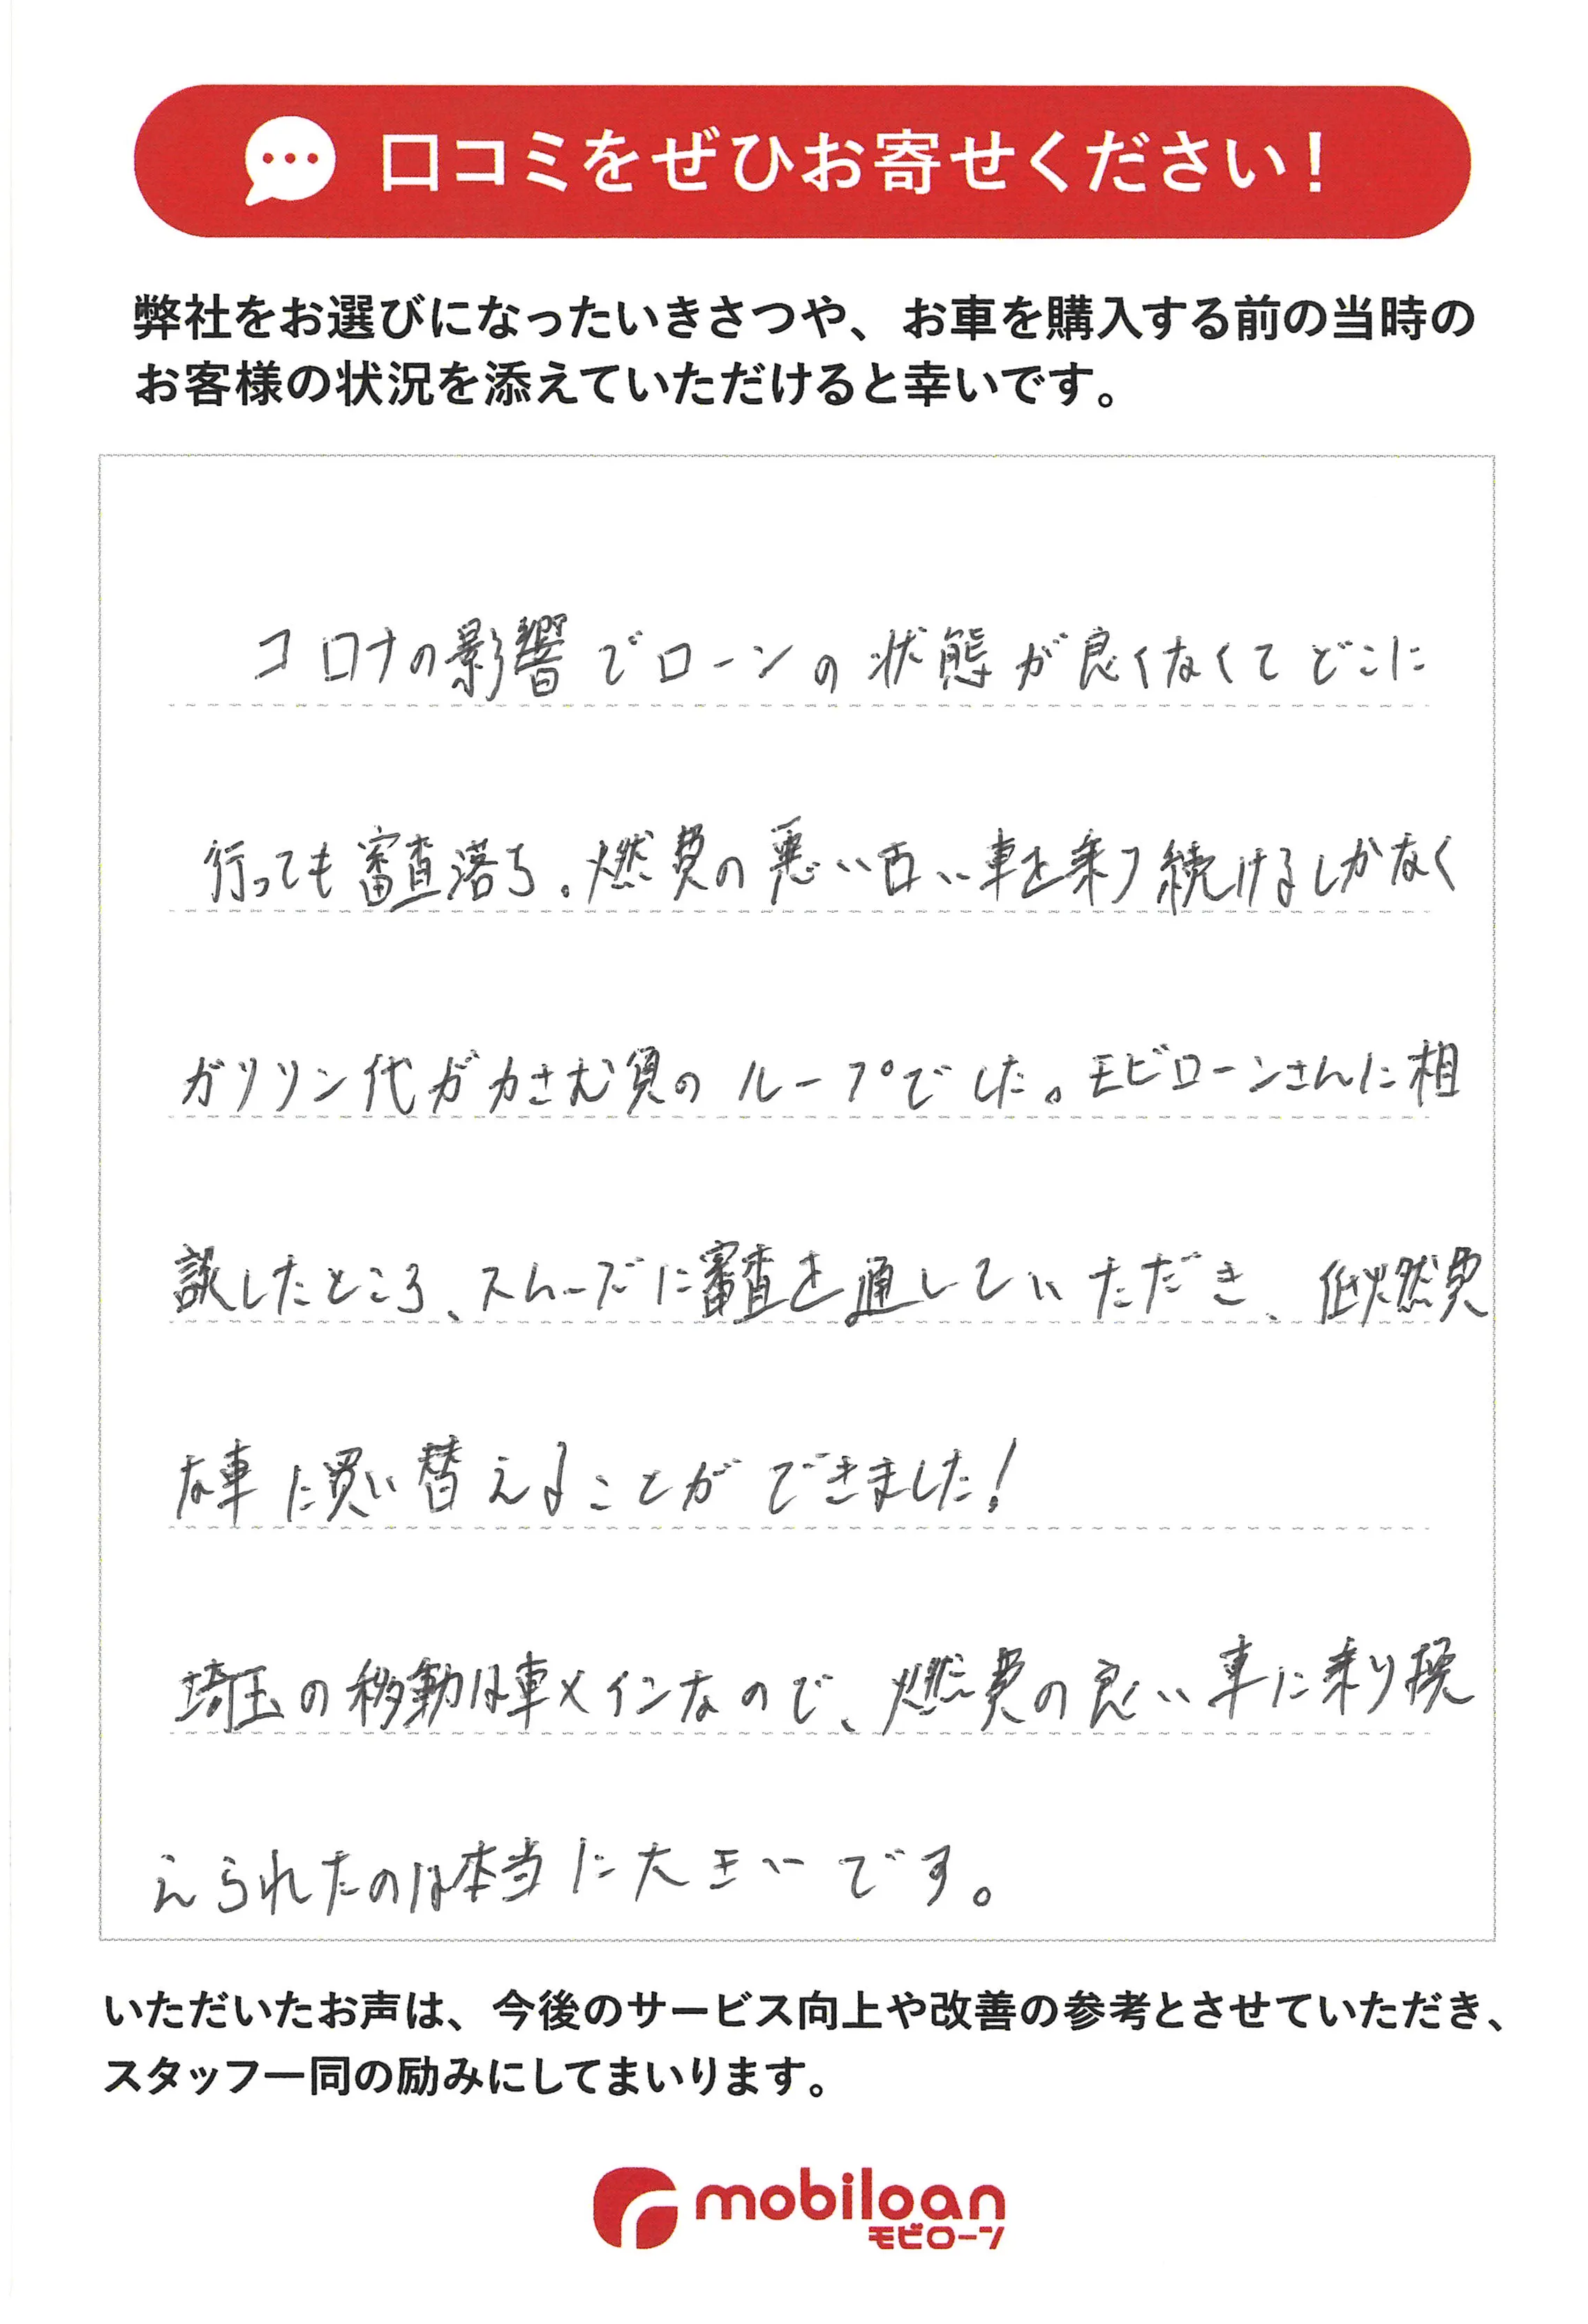 口コミをぜひお寄せください！
弊社をお選びになったいきさつや、お車を購入する前の当時の
お客様の状況を添えていただけると幸いです。
コロナの影響でローンの状態が良くなくてどこに
行っても審査落ち。燃費の悪い古い車を乗り続けるしかなく
ガソリン代がかさむ負のループでした。モビローンさんに相
談したところ、スムーズに審査を通していただき、低燃費
な車に買い替えることができました！
埼玉の移動は車メインなので、燃費の良い車に乗り換
えられたのは本当に大きいです。
いただいたお声は、今後のサービス向上や改善の参考とさせていただき、
スタッフ一同の励みにしてまいります。
mobiloan
モビローン